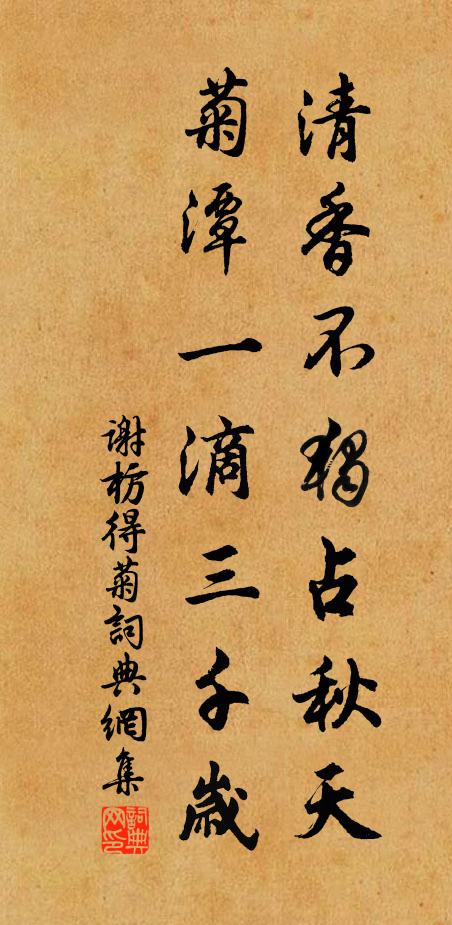 清香不獨占秋天
菊潭一滴三千歲
谢枋得菊詞典網集
詞典网印